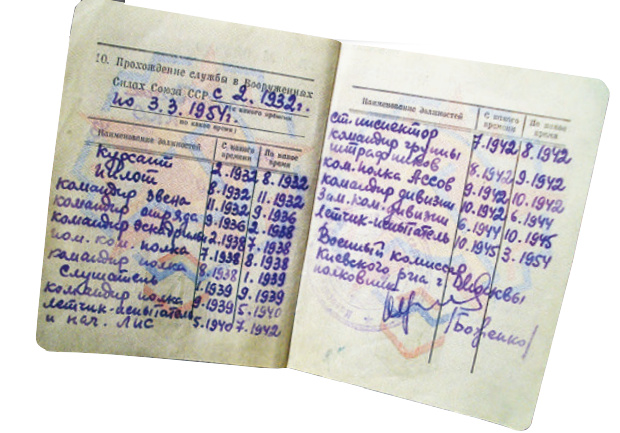 10. Прохождение службы в Вооруженных
Силах Союза ССР с 2. 1932г.
(с какого времени
по 3.3. 1954г.
по какое время)
Наименование должностей С какого времени По какое время
Курсант 2.1932 8.1932
Пилот 8.1932 11.1932
командир звена 11.1932 9.1936
командир отряда 9.1936 2.1938
командир эскадрильи 2.1938 7.1938
пом. ком. полка 7.1938 8.1938
командир полка 8.1938 1.1939
Слушатель 1.1939 9.1939
командир полка 9.1939 5.1940
летчик-испытатель
и нач. Лис 5.1940 7.1942
Наименование должностей С какого времени По какое время
ст. инспектор 7.1942 8.1942
командир группы
штрафников 8.1942 9.1942
ком. полка Ассов 9.1942 10.1942
командир дивизии 10.1942 6.1944
Зам. ком. дивизии 6.1944 10.1945
летчик-испытатель 10.1945 3.1954
Военный комиссар
Киевского рна г. Москвы
полковник
/Боженко/